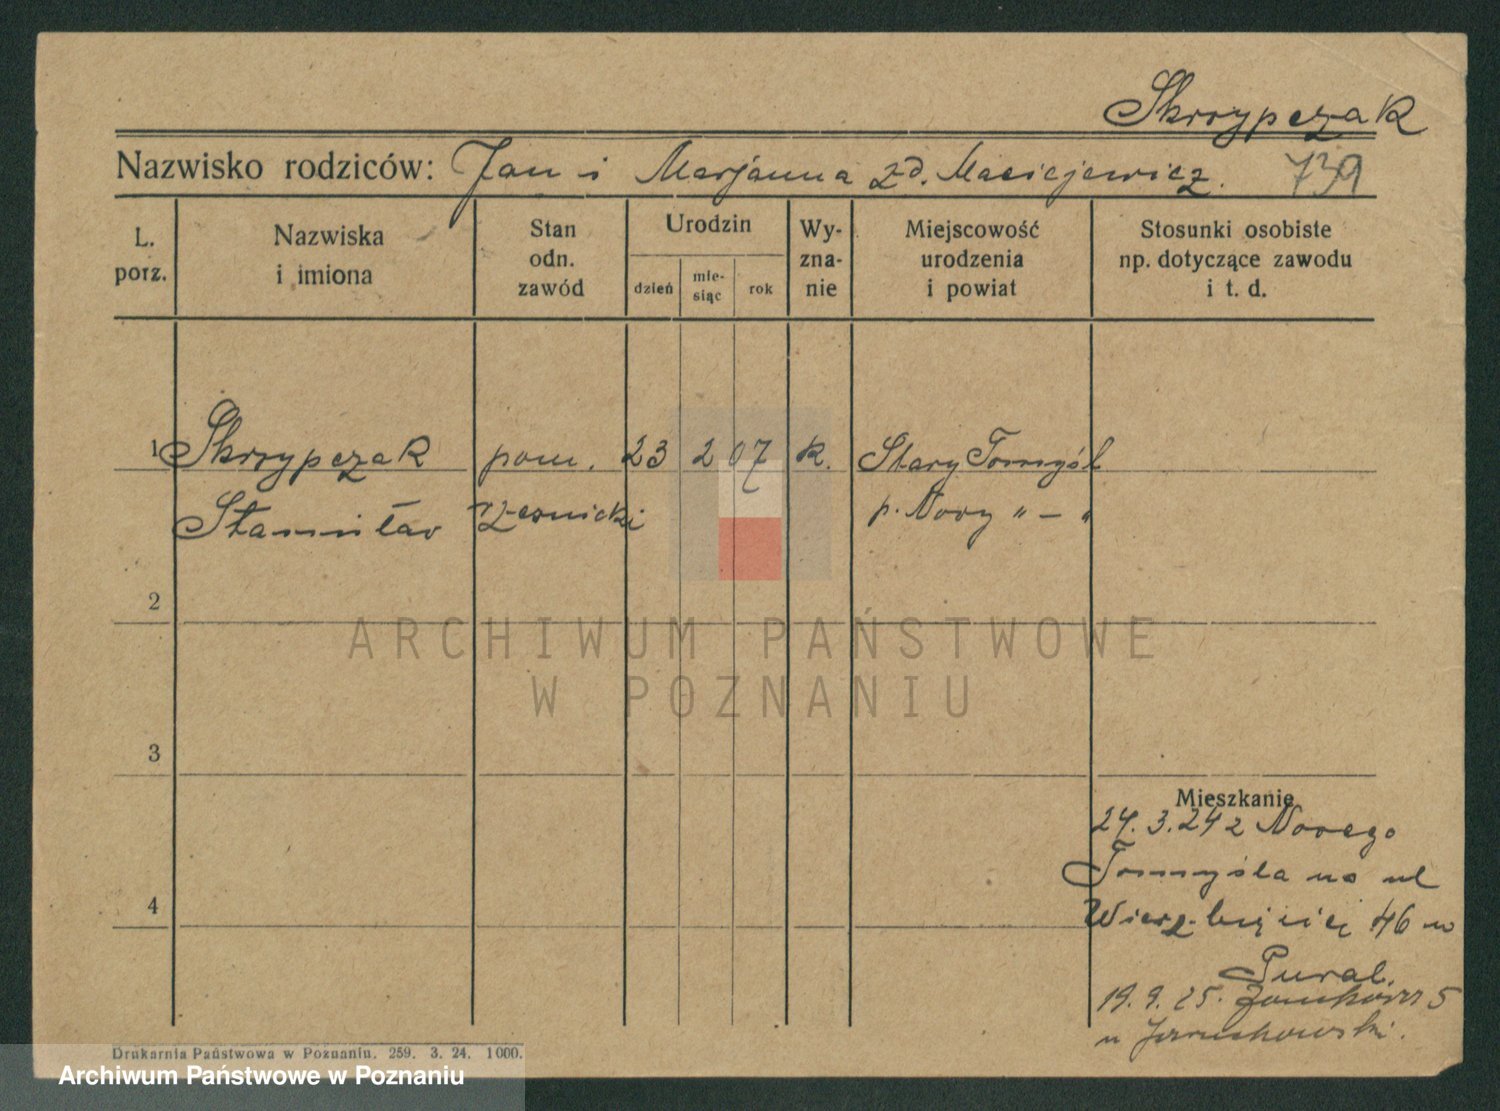 Skrzypczak
Nazwisko rodziców: Jan i Marjanna zd. Maciejewicz. 739
L. porz.
Nazwiska i imiona
Stan odn. zawód
Urodzin
dzień
mie-siąc
rok
Wy-zna-nie
Miejscowość urodzenia i powiat
Stosunki osobiste np. dotyczące zawodu i t. d.
1 Skrzypczak pom. 23 2 07 k. Stary Tomyśl
Stanisław rzeźnicki p. Nowy " — "
2
ARCHIWUM PAŃSTWOWE
W POZNANIU
3
Mieszkanie
24. 3. 24 z Nowego
Tomyśla na ul
4
Wierzbięcic 46 u
19. 9. 25. 5
u
Drukarnia Państwowa w Poznaniu. 259. 3. 24. 1000.
Archiwum Państwowe w Poznaniu